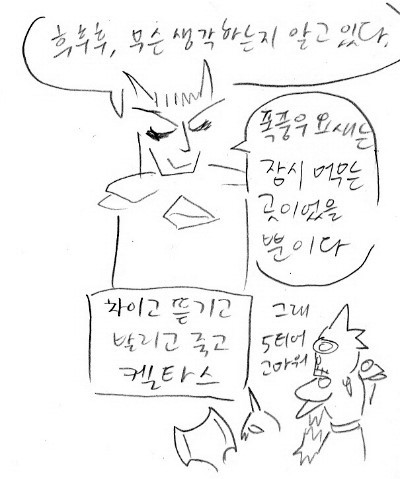 후후후, 무슨 생각하는지 알고 있다.
폭풍우 요새는
잠시 머무는
곳이었을
뿐이다
차이고 뜯기고
발리고 죽고
켈타스
그래
5티어
고마워